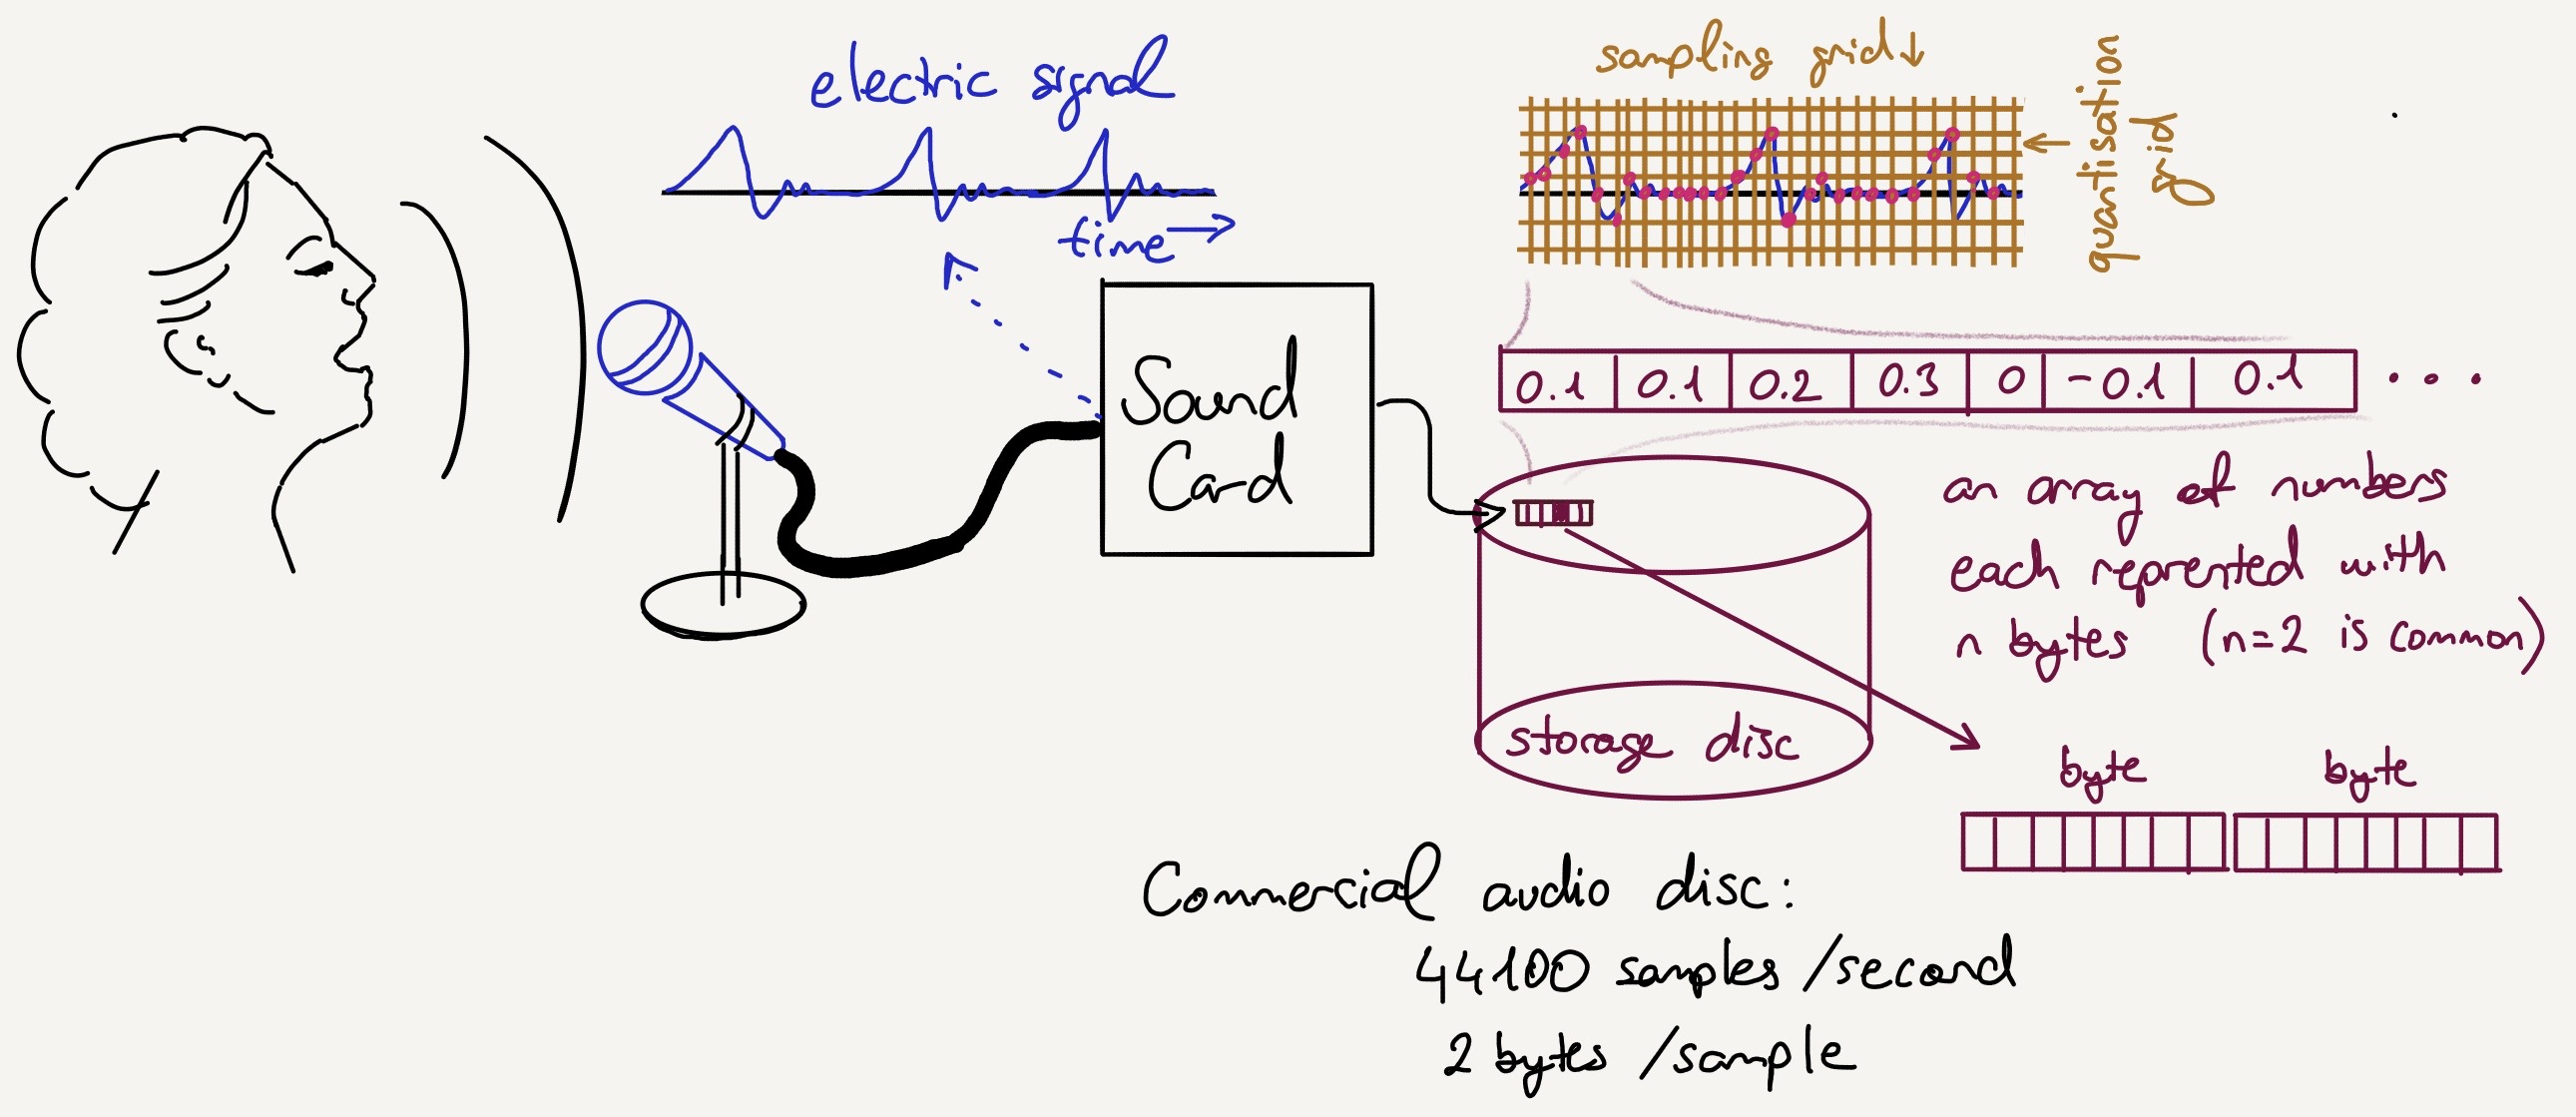 electric signal
time
sampling grid
quantisation
grid
Sound
Card
0.1 0.1 0.2 0.3 0 -0.1 0.1 ...
an array of numbers
each reprented with
n bytes (n=2 is common)
storage disc
byte byte
Commercial audio disc:
44100 samples /second
2 bytes /sample